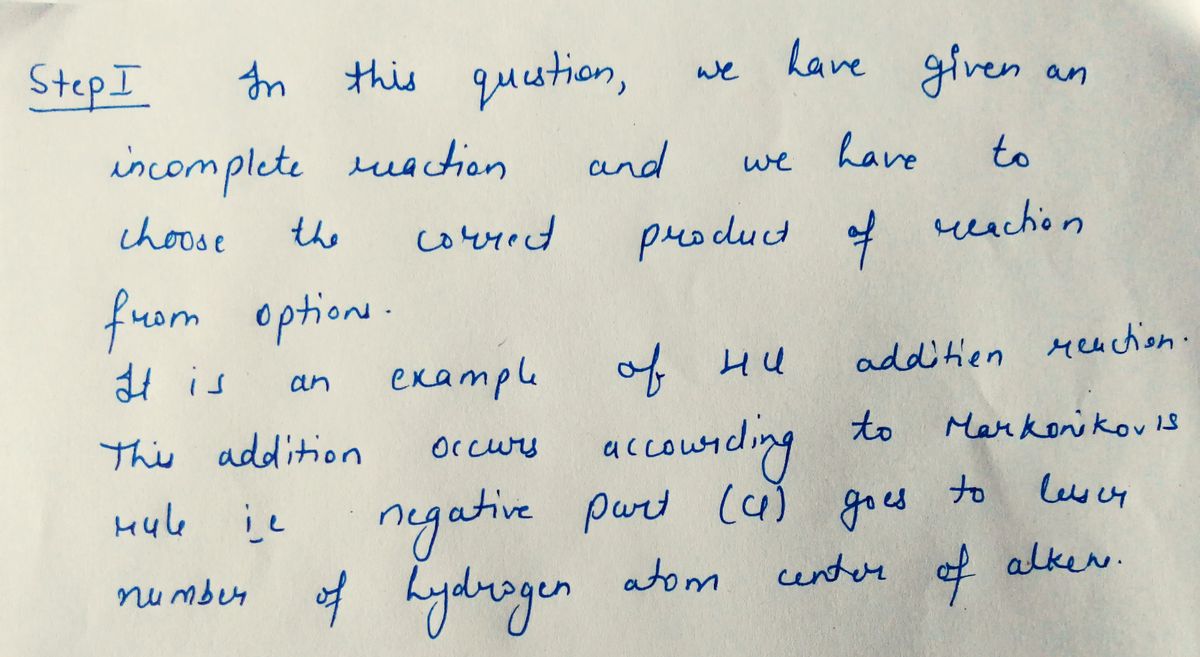 Step I In this question, we have given an
incomplete reaction and we have to
choose the correct product of reaction
from options.
It is an example of HCl addition reaction.
This addition occurs according to Markonikov's
rule i.e negative part (Cl) goes to lesser
number of hydrogen atom center of alkene.